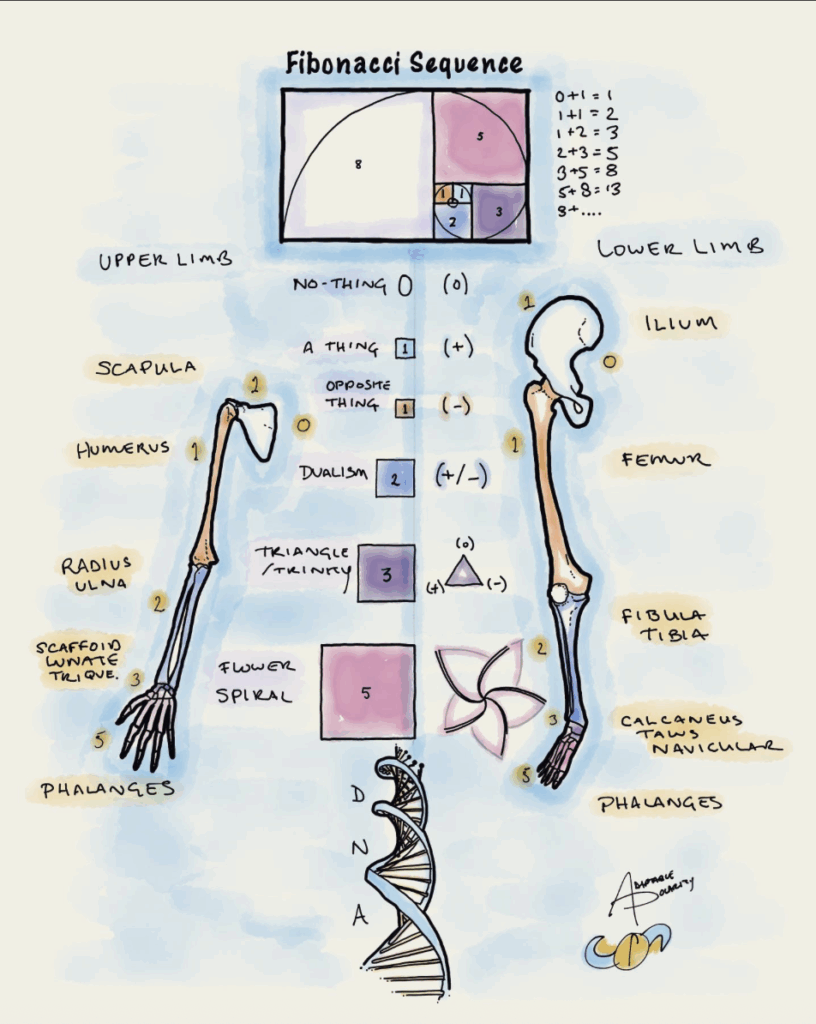 Fibonacci Sequence
8
5
1
1
2
3
0+1=1
1+1=2
1+2=3
2+3=5
3+5=8
5+8=13
8+....
UPPER LIMB
LOWER LIMB
NO-THING 0 (0)
A THING 1 (+)
OPPOSITE
THING 1 (-)
DUALISM 2 (+/-)
TRIANGLE
/TRINITY 3
(0)
(+) (-)
FLOWER
SPIRAL
5
D
N
A
SCAPULA
2
0
HUMERUS
1
RADIUS
ULNA
2
SCAFFOID
LUNATE
TRIQUE.
3
5
PHALANGES
1
ILIUM
0
1
FEMUR
FIBULA
TIBIA
2
3
CALCANEUS
TALUS
NAVICULAR
5
PHALANGES
ADAPTABLE
POLARITY